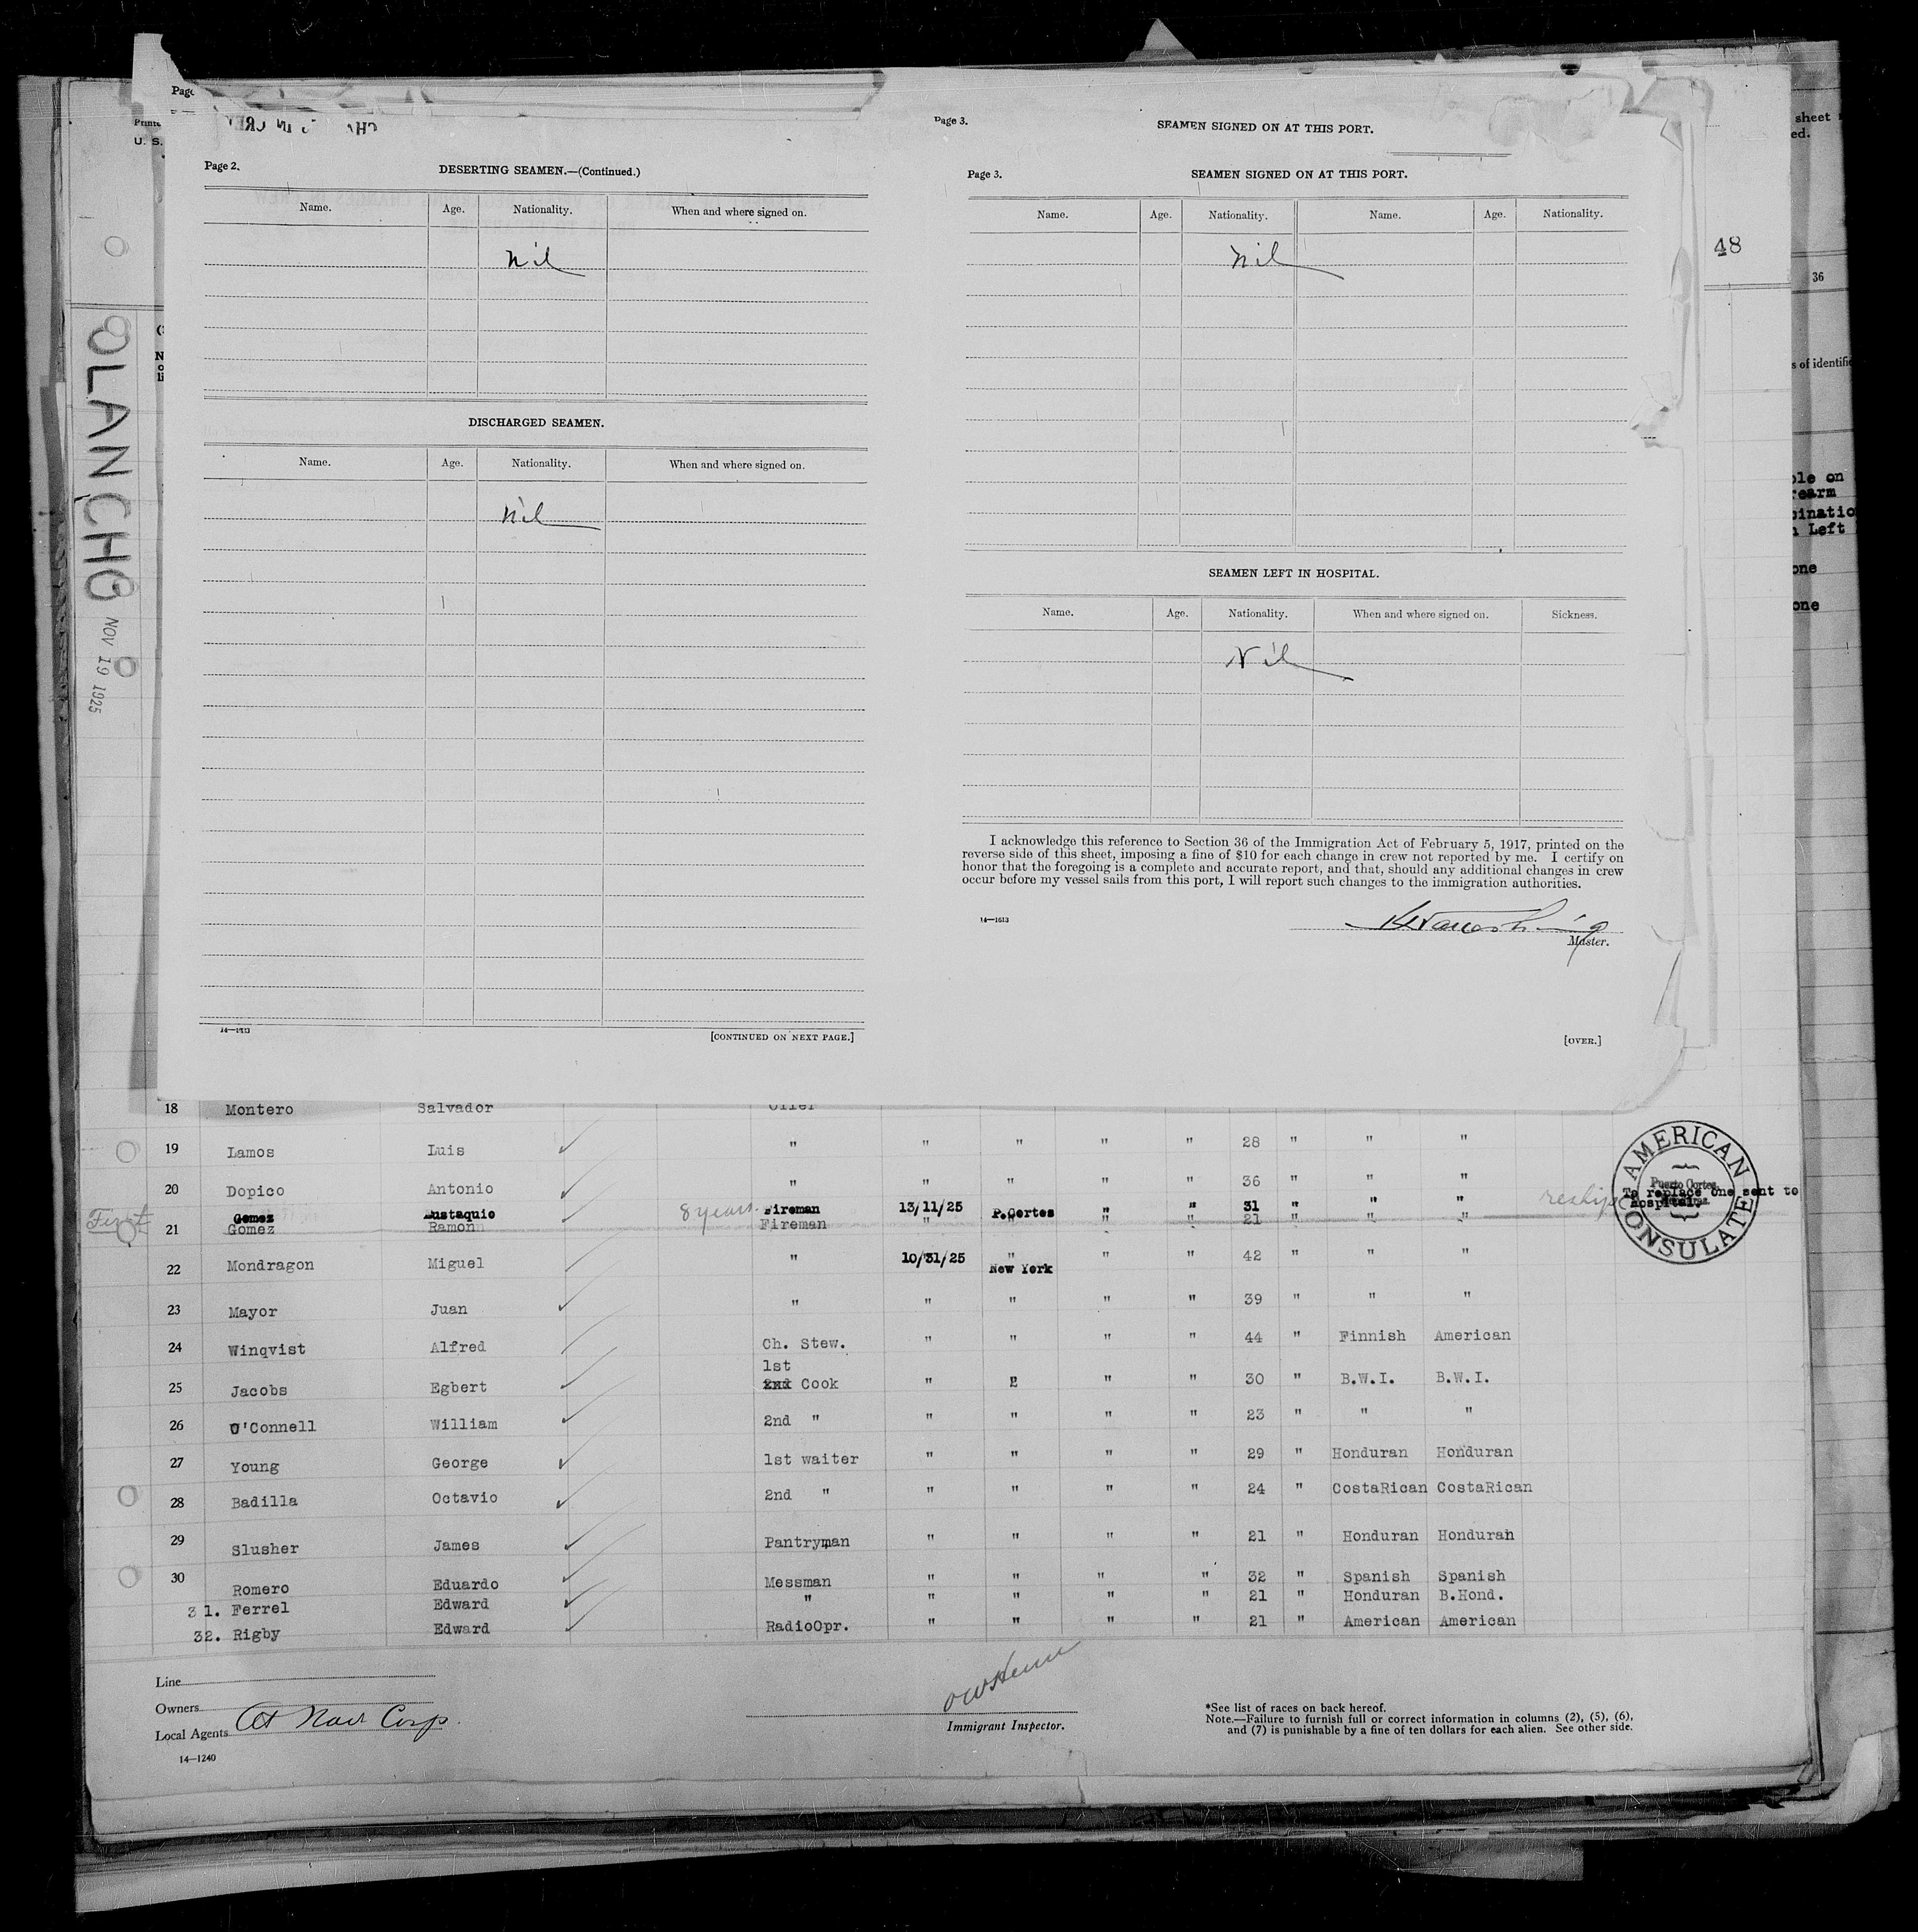 Page
Printe
U. S.
sheet
ed.
Page 3.
SEAMEN SIGNED ON AT THIS PORT.
Page 2.
DESERTING SEAMEN.—(Continued.)
Name. Age. Nationality. When and where signed on.
Nil
DISCHARGED SEAMEN.
Name. Age. Nationality. When and where signed on.
Nil
14—1613
[CONTINUED ON NEXT PAGE.]
Page 3.
SEAMEN SIGNED ON AT THIS PORT.
Name. Age. Nationality. Name. Age. Nationality.
Nil
SEAMEN LEFT IN HOSPITAL.
Name. Age. Nationality. When and where signed on. Sickness.
Nil
I acknowledge this reference to Section 36 of the Immigration Act of February 5, 1917, printed on the
reverse side of this sheet, imposing a fine of $10 for each change in crew not reported by me. I certify on
honor that the foregoing is a complete and accurate report, and that, should any additional changes in crew
occur before my vessel sails from this port, I will report such changes to the immigration authorities.
14—1613
Master.
[OVER.]
48
36
s of identific
ple on
rearm
cinatio
n Left
one
one
OLANCHO
NOV 19 1925
18 Montero Salvador Oiler
19 Lamos Luis " " " " " 28 " " "
20 Dopico Antonio " " " " " 36 " " "
First Gomez Eustaquio 8 years Fireman 13/11/25 P.Cortes " " 31 " " " reships To replace one sent to hospital.
21 Gomez Ramon Fireman " " " " 21 " " "
22 Mondragon Miguel " 10/31/25 " New York " " 42 " " "
23 Mayor Juan " " " " " 39 " " "
24 Winqvist Alfred Ch. Stew. " " " " 44 " Finnish American
1st
25 Jacobs Egbert 2nd Cook " " " " 30 " B.W.I. B.W.I.
26 O'Connell William 2nd " " " " " 23 " " "
27 Young George 1st waiter " " " " 29 " Honduran Honduran
28 Badilla Octavio 2nd " " " " " 24 " CostaRican CostaRican
29 Slusher James Pantryman " " " " 21 " Honduran Honduran
30 Romero Eduardo Messman " " " " 32 " Spanish Spanish
31. Ferrel Edward " " " " " 21 " Honduran B.Hond.
32. Rigby Edward RadioOpr. " " " " 21 " American American
AMERICAN CONSULATE
Puerto Cortes,
Line
Owners
Local Agents At Nav Corp.
14—1240
Immigrant Inspector.
*See list of races on back hereof.
Note.—Failure to furnish full or correct information in columns (2), (5), (6),
and (7) is punishable by a fine of ten dollars for each alien. See other side.